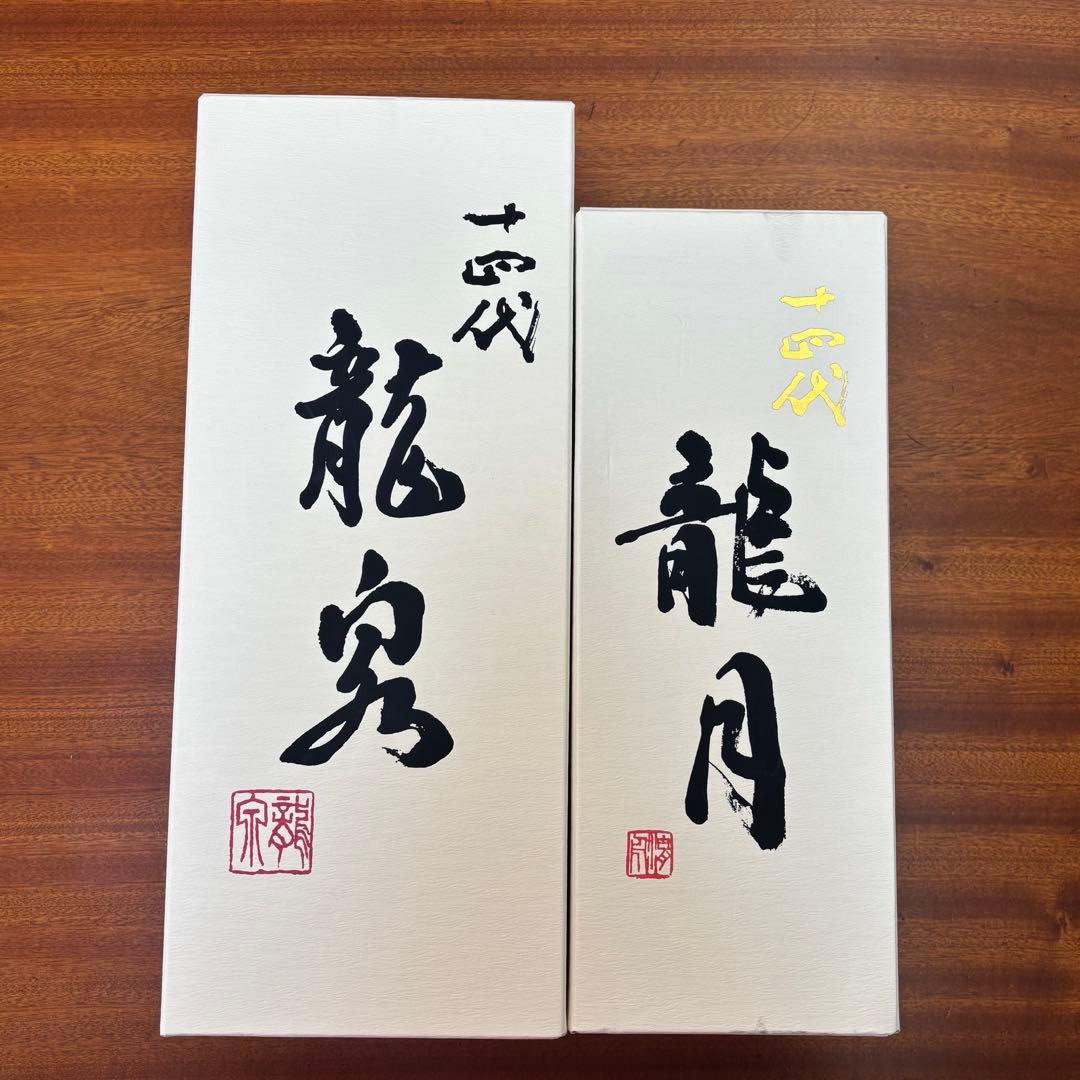 十四代
龍泉
十四代
龍月